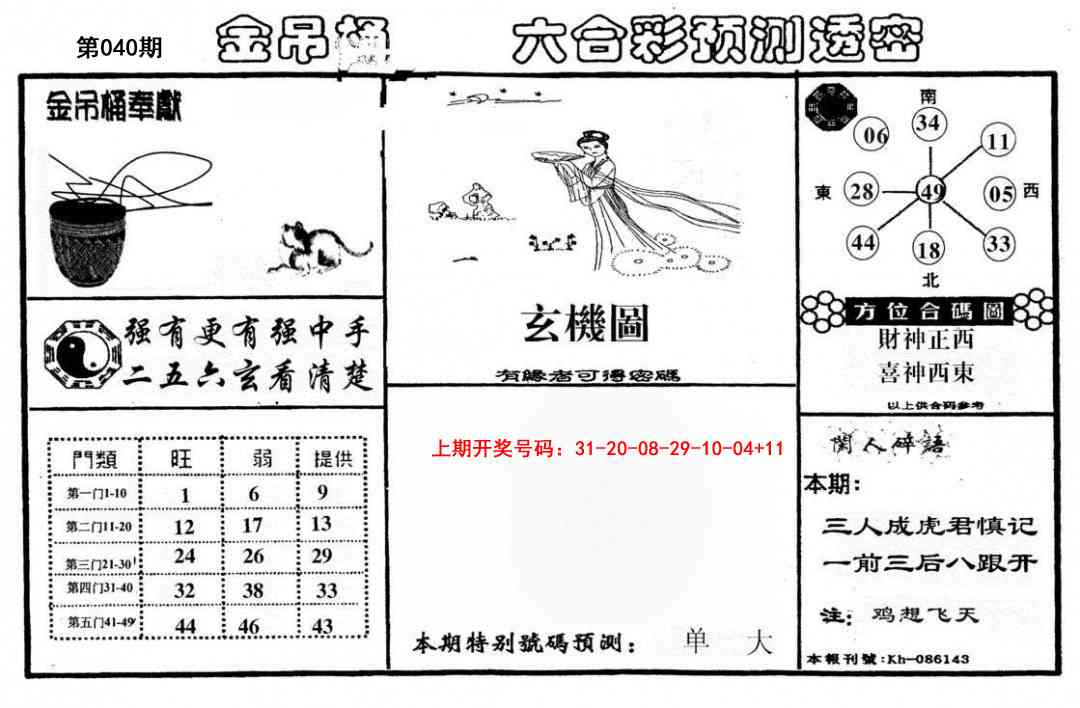 第040期
金吊桶 六合彩预测透密
金吊桶奉獻
强有更有强中手
二五六玄看清楚
門類 旺 弱 提供
第一门1-10 1 6 9
第二门11-20 12 17 13
第三门21-30 24 26 29
第四门31-40 32 38 33
第五门41-49 44 46 43
玄機圖
有緣者可得密碼
上期开奖号码：31-20-08-29-10-04+11
本期特别號碼預测： 单 大
南
06 34 11
東 28 49 05 西
44 18 33
北
方位合碼圖
財神正西
喜神西東
以上供合码参考
閑人碎語
本期：
三人成虎君慎记
一前三后八跟开
注：鸡想飞天
本報刊號:Kh-086143